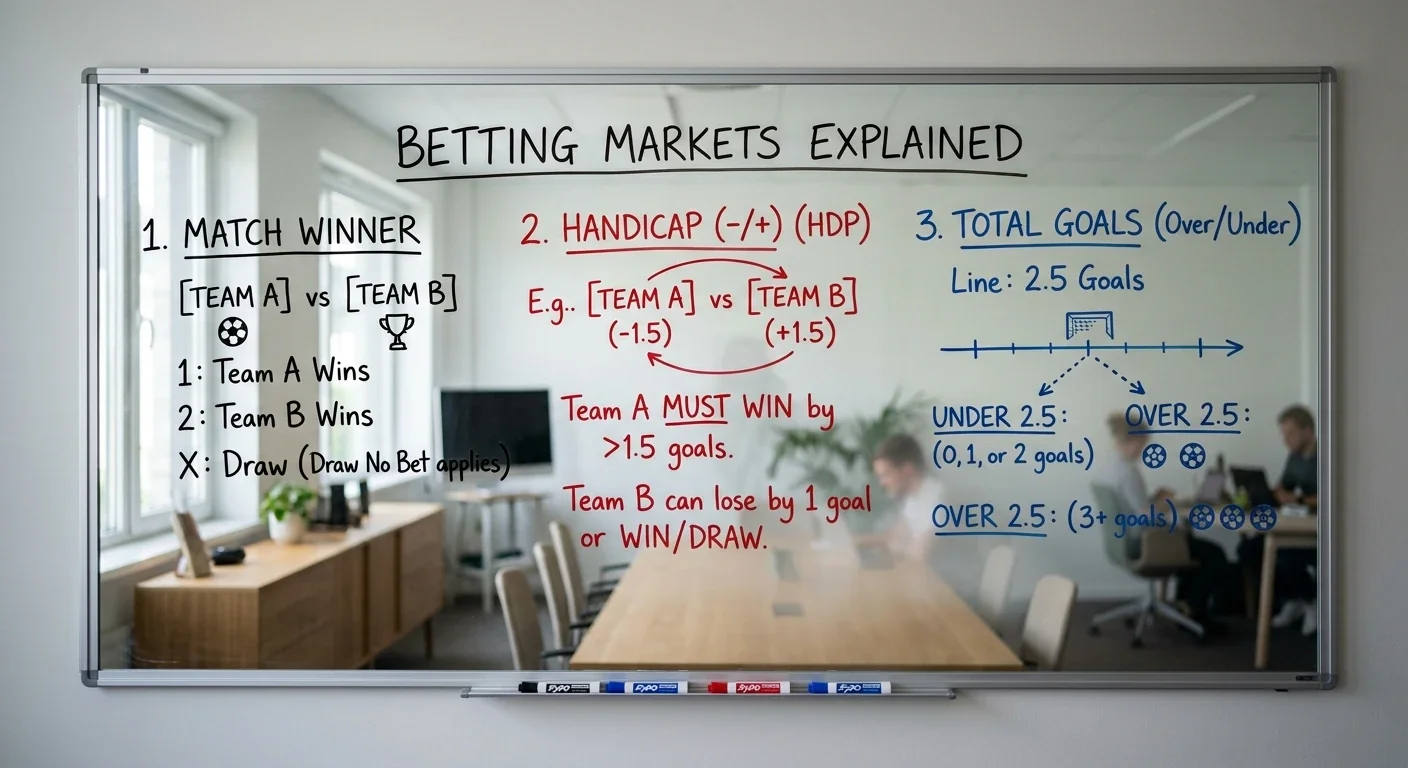 BETTING MARKETS EXPLAINED
1. MATCH WINNER
[TEAM A] vs [TEAM B]
1: Team A Wins
2: Team B Wins
X: Draw (Draw No Bet applies)
2. HANDICAP (-/+) (HDP)
E.g.. [TEAM A] vs [TEAM B]
(-1.5) (+1.5)
Team A MUST WIN by
>1.5 goals.
Team B can lose by 1 goal
or WIN/DRAW.
3. TOTAL GOALS (Over/Under)
Line: 2.5 Goals
UNDER 2.5: OVER 2.5:
(0, 1, or 2 goals)
OVER 2.5: (3+ goals)